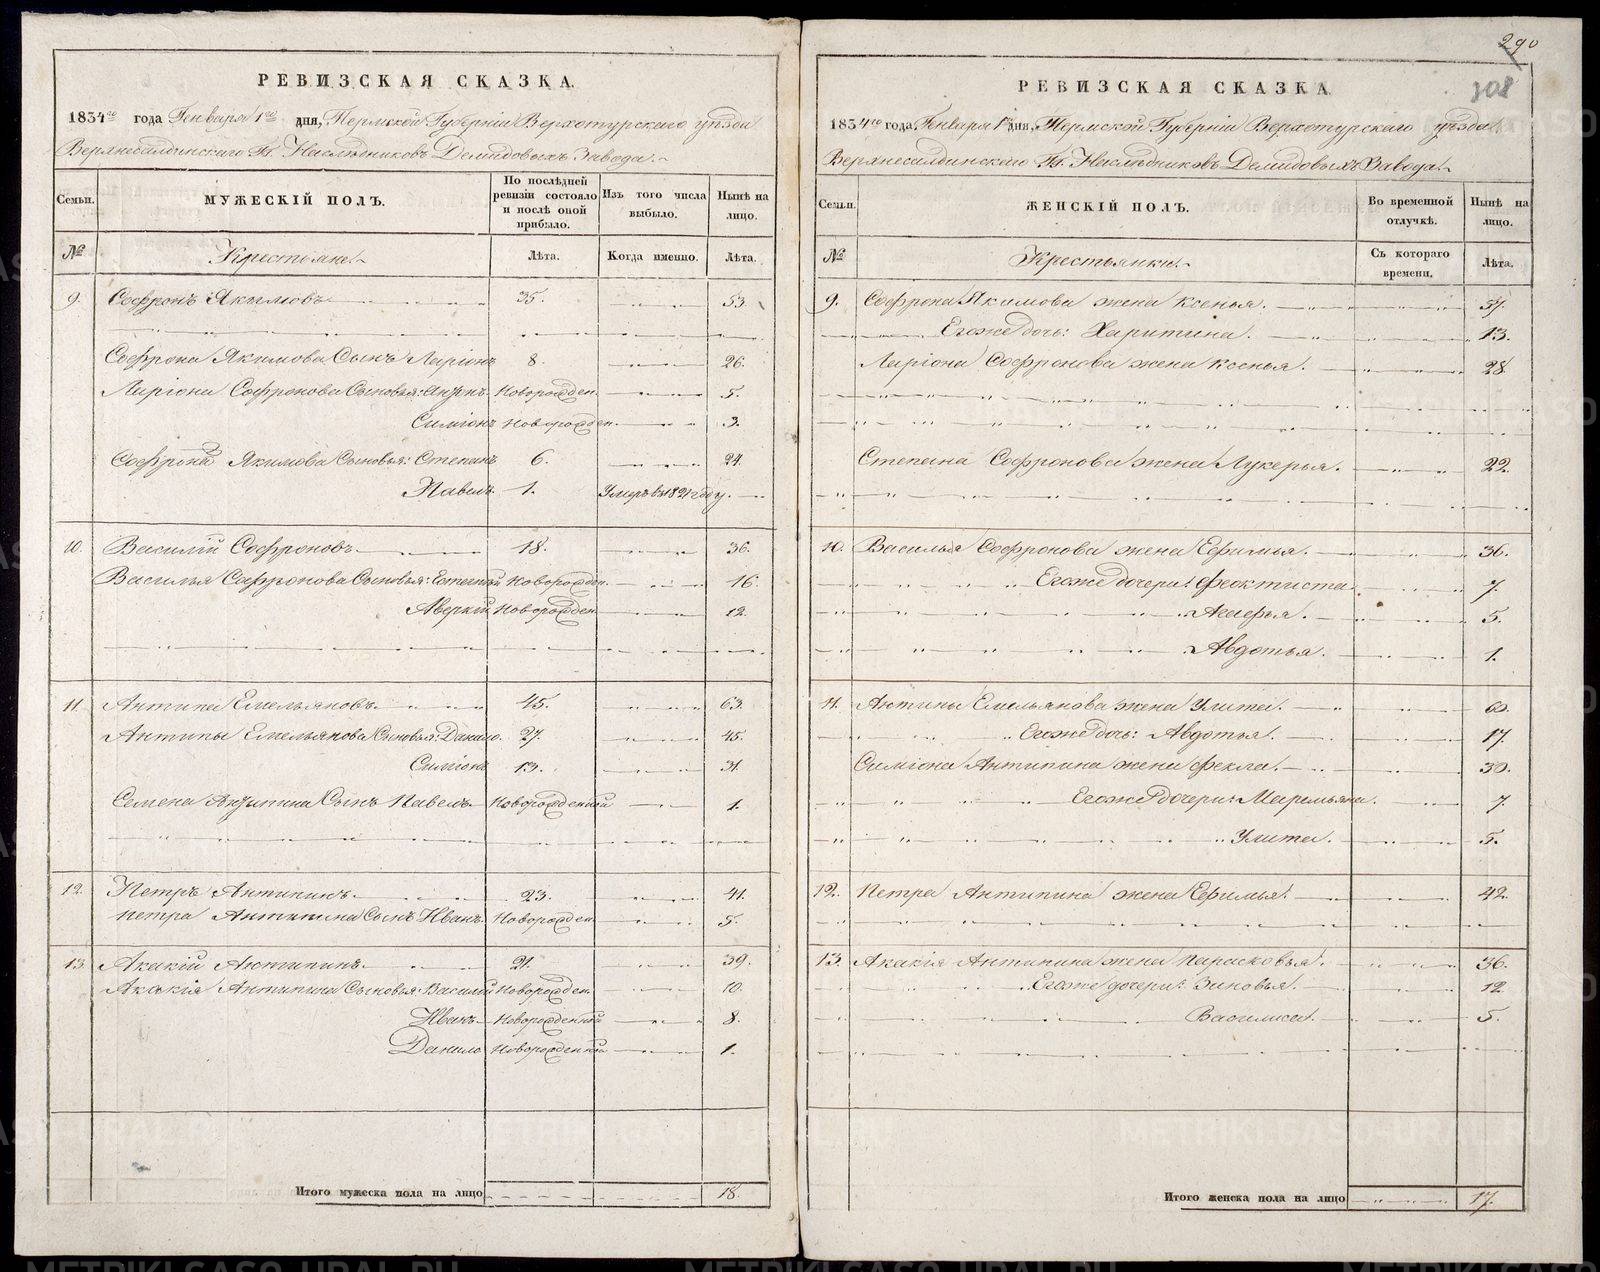 РЕВИЗСКАЯ СКАЗКА.
1834го года Генваря 1го дня, Пермской Губерніи Верхотурского уѣзда
Верхнесалдинского Гг. Наслѣдниковъ Демидовыхъ Завода.
Семьи. МУЖЕСКІЙ ПОЛЪ. По послѣдней ревизіи состояло и послѣ оной прибыло. Изъ того числа выбыло. Нынѣ на лицо.
№ Крестьяне. Лѣта. Когда именно. Лѣта.
9. Софронъ Якимовъ 35. 53
Софрона Якимова Сынъ Ларіонъ 8. 26.
Ларіона Софронова Сыновья: Новорожден. 5.
Симіонъ Новорожден. 3.
Софрона Якимова Сыновья: Степанъ 6. 24.
Павелъ 1. Умеръ въ 1821 году.
10. Василій Софроновъ 18. 36.
Василья Софронова Сыновья: Евгеній Новорожден. 16.
Аверкій Новорожден. 12.
11. Антипа Емельяновъ 45. 63.
Антипы Емельянова Сыновья: Данило. 27. 45.
Симіонъ 13. 31.
Семена Антипина Сынъ Павелъ Новорожденный 1.
12. Петръ Антипинъ 23. 41.
Петра Антипина Сынъ Иванъ Новорожден. 5.
13. Акакій Антипинъ 21. 39.
Акакія Антипина Сыновья: Василій Новорожден. 10.
Иванъ Новорожденный 8.
Данило Новорожденный 1.
Итого мужеска пола на лицо 18.
290
308
РЕВИЗСКАЯ СКАЗКА
1834го года Генваря 1го дня, Пермской Губерніи Верхотурского уѣзда
Верхнесалдинского Гг. Наслѣдниковъ Демидовыхъ Завода.
Семьи. ЖЕНСКІЙ ПОЛЪ. Во временной отлучкѣ. Нынѣ на лицо.
№ Крестьянки. Съ котораго времени. Лѣта.
9. Софрона Якимова жена Ксенья. 57.
Егоже дочь: Харитина. 13.
Ларіона Софронова жена Ксенья. 28.
Степана Софронова жена Лукерья. 22.
10. Василья Софронова жена Ефимья. 36.
Егоже дочери: Феоктиста. 7.
5.
Авдотья. 1.
11. Антипы Емельянова жена Улита. 60.
Егоже дочь: Авдотья. 17.
Симіона Антипина жена Фекла. 30.
Егоже дочери: Маремьяна. 7.
Улита. 5.
12. Петра Антипина жена Ефимья. 42.
13. Акакія Антипина жена Парасковья. 36.
Егоже дочери: Зиновья. 12.
Василиса. 5.
Итого женска пола на лицо 17.
METRIKI.GASO-URAL.RU